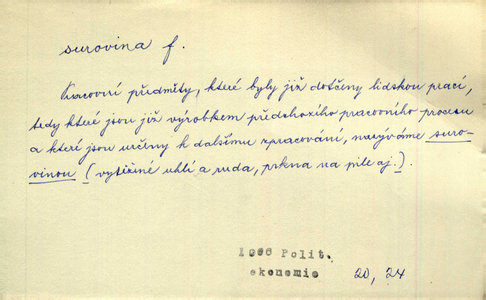 surovina f.
Pracovní předměty, které byly již dotčeny lidskou prací,
tedy které jsou již výrobkem předchozího pracovního procesu
a které jsou určeny k dalšímu zpracování, nazýváme suro-
vinou (vytěžené uhlí a ruda, prkna na pile aj.).
Polit.
ekonomie 20, 24